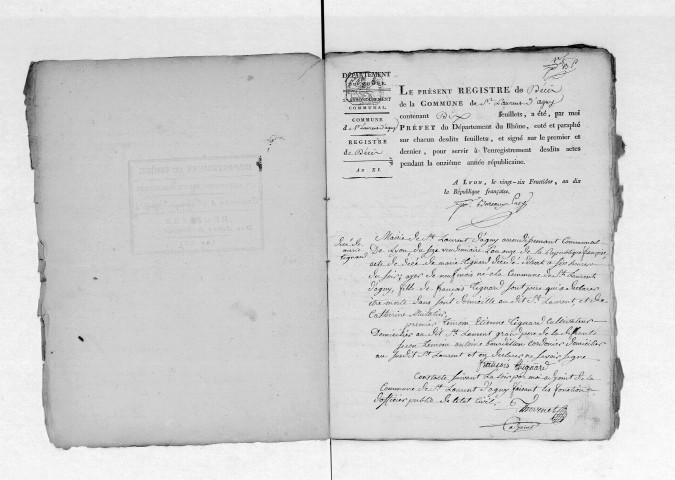 DÉPARTEMENT
DU RHONE.
ARRONDISSEMENT
COMMUNAL.
COMMUNE
de St Laurent d'agny
REGISTRE
de Décès
AN XI.
LE PRÉSENT REGISTRE de Décès
de la COMMUNE de St Laurent d'agny
contenant Dix feuillets, a été, par moi
PRÉFET du Département du Rhône, coté et paraphé
sur chacun desdits feuillets, et signé sur le premier et
dernier, pour servir à l'enregistrement desdits actes
pendant la onzième année républicaine.
A LYON, le vingt-six Fructidor, an dix
de la République française.
Décè de
marie
Mairie de St Laurent d'agny arrondissement Communal
De Lyon du vendemiaire Lan onze de la Republique française
acte de Decé de marie decédé
de soir, agée de neuf mois né a la Commune de St Laurent
d'agny, fille de françois
etre morte dans sont domicille au dit St Laurent et de
Catherine
premier temoin Etienne Cultivateur
Domicilier au dit St Laurent grand pere de la deffunte
secon temoin antoine cordonier domicilier
au susdit St Laurent et on declarer ne savoir signe
françois
Constaté suivant La loi par moi adjoint de la
Commune de St Laurent d'agny faisant les fonctions
d'officier public de letat Civil.
Thevenet
adjoint